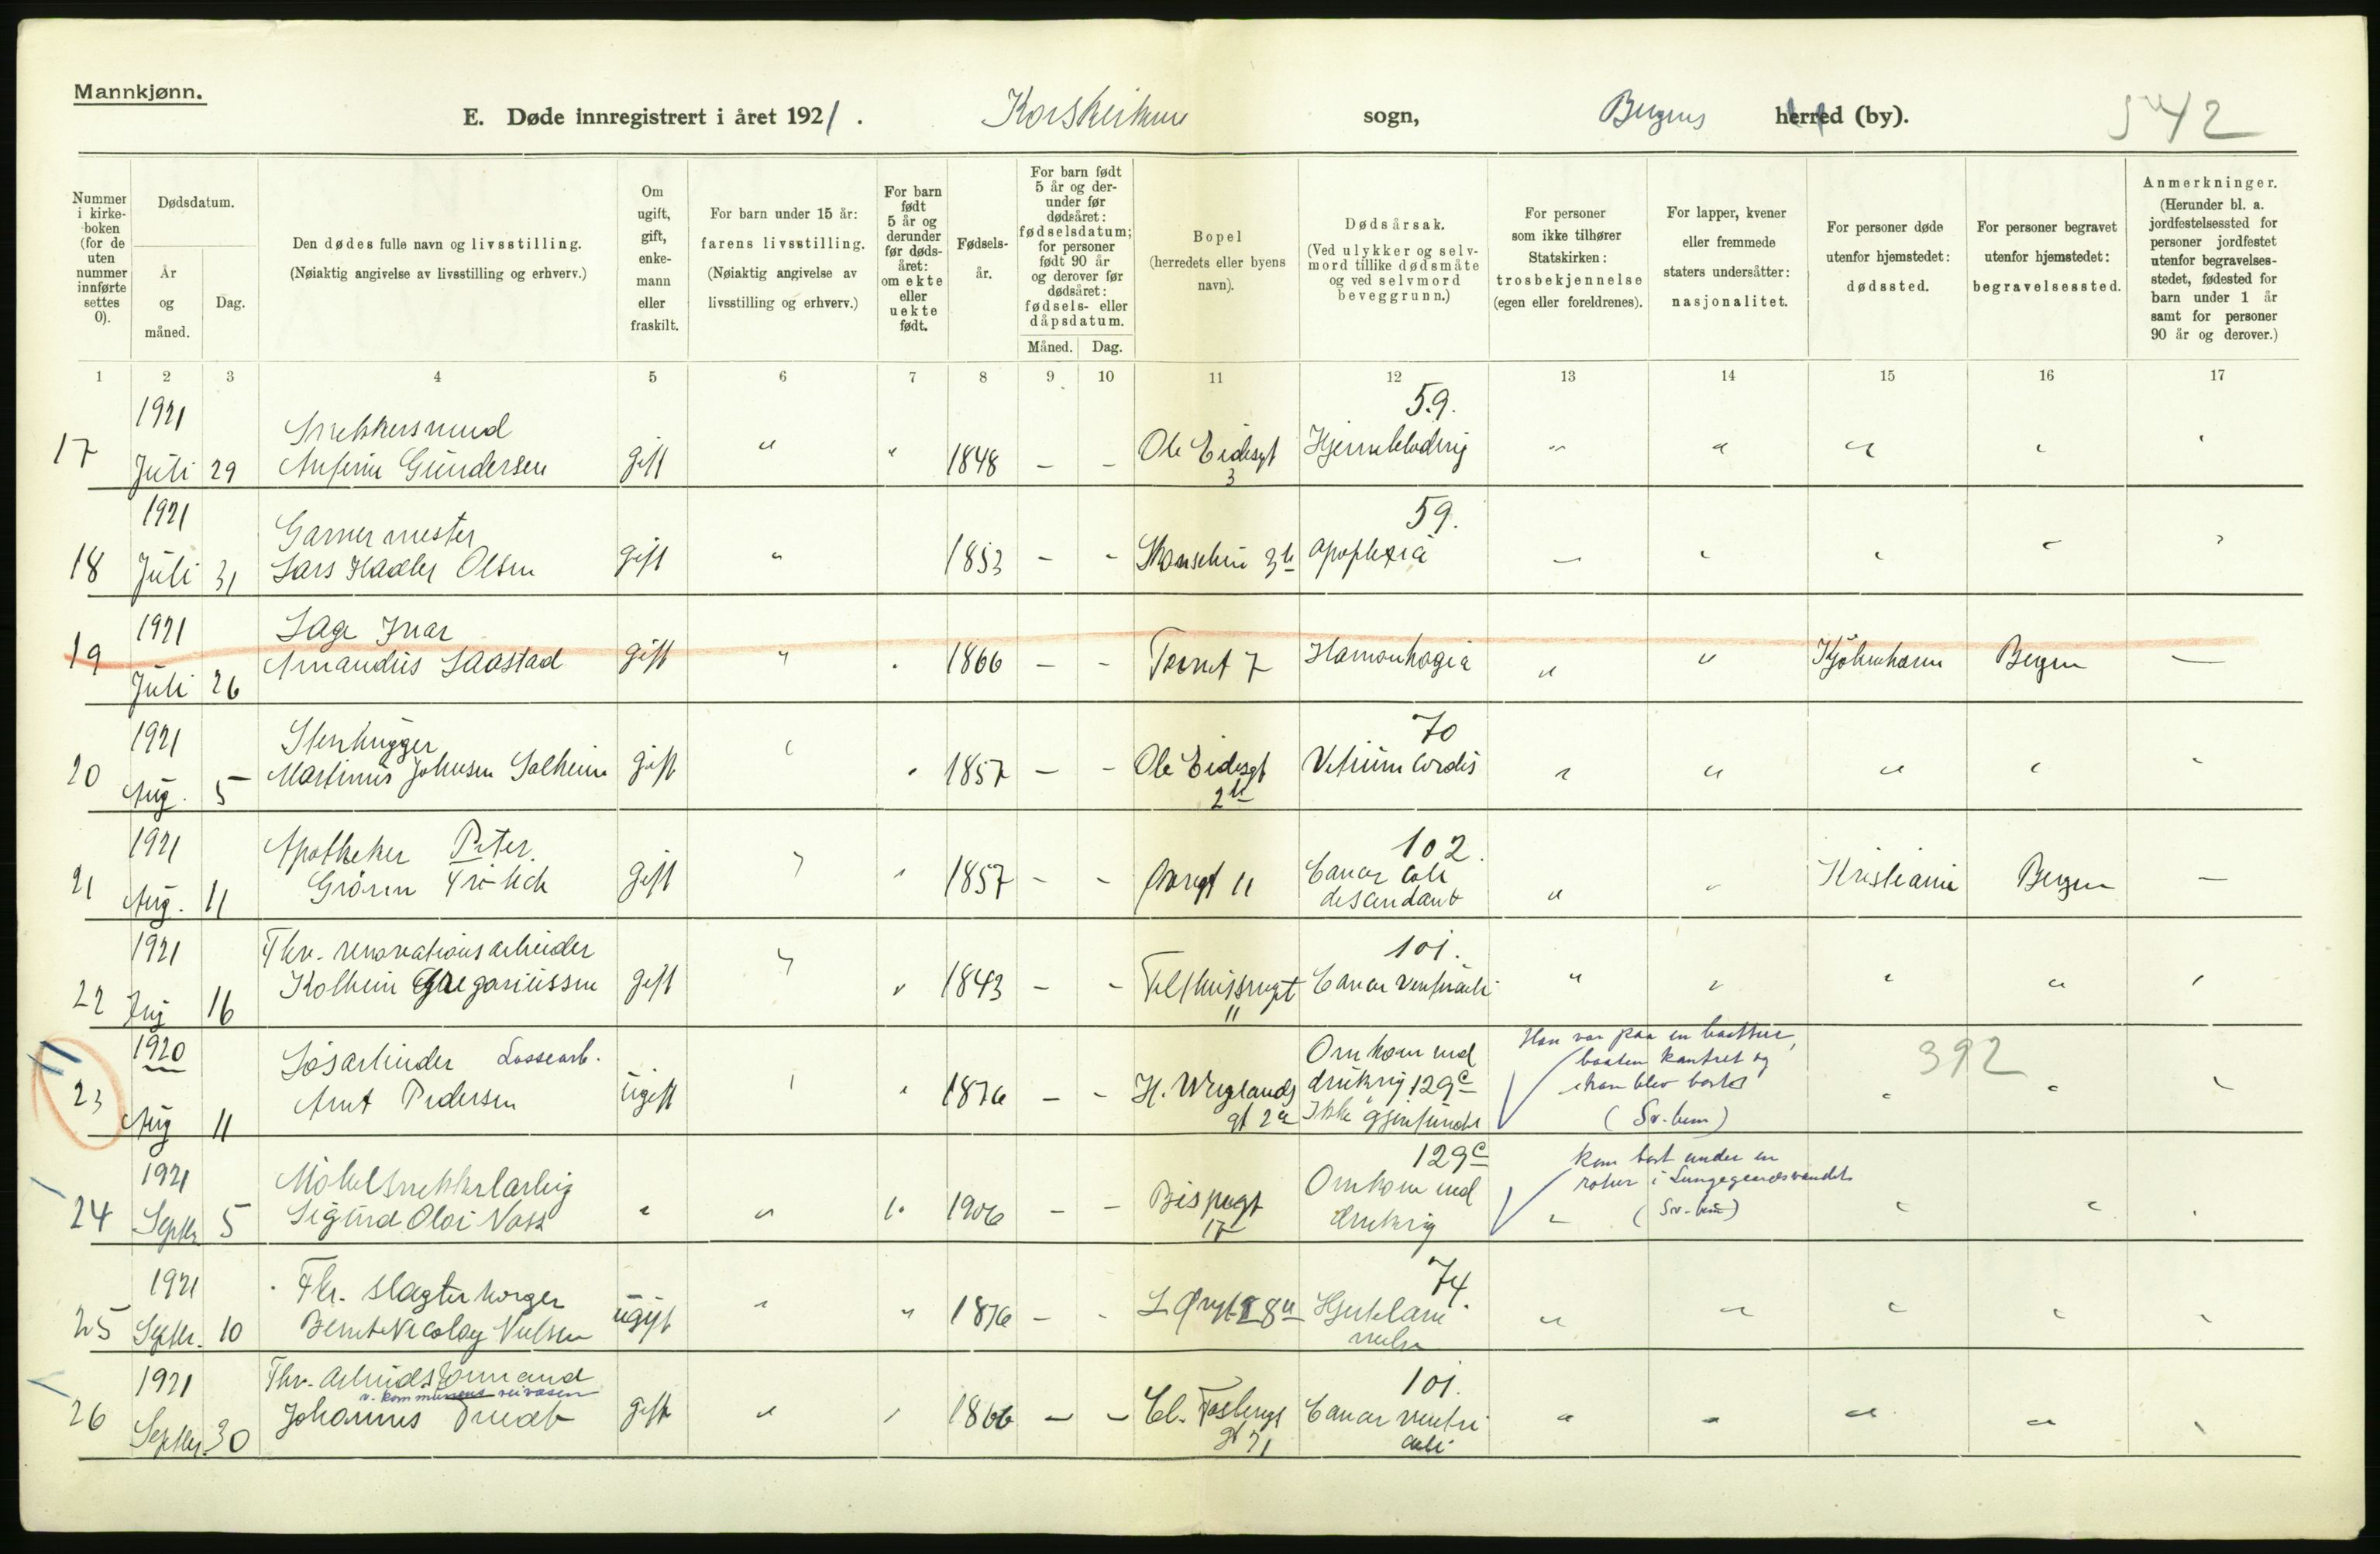 Mannkjønn.
E. Døde innregistrert i året 1921.
Korskirkens
sogn,
Bergens
herred (by).
542
Nummer i kirke-boken (for de uten nummer innførte settes 0).
Dødsdatum.
År og måned.
Dag.
Den dødes fulle navn og livsstilling.
(Nøiaktig angivelse av livsstilling og erhverv.)
Om ugift, gift, enke-mann eller fraskilt.
For barn under 15 år: farens livsstilling.
(Nøiaktig angivelse av livsstilling og erhverv.)
For barn født 5 år og derunder før døds-året: om ekte eller uekte født.
Fødsels-år.
For barn født 5 år og der-under før dødsåret: fødselsdatum; for personer født 90 år og derover før dødsåret: fødsels- eller dåpsdatum.
Måned.
Dag.
Bopel
(herredets eller byens navn).
Dødsårsak.
(Ved ulykker og selv-mord tillike dødsmåte og ved selvmord beveggrunn.)
For personer som ikke tilhører Statskirken: trosbekjennelse (egen eller foreldrenes).
For lapper, kvener eller fremmede staters undersåtter: nasjonalitet.
For personer døde utenfor hjemstedet: dødssted.
For personer begravet utenfor hjemstedet: begravelsessted.
Anmerkninger.
(Herunder bl. a. jordfestelsessted for personer jordfestet utenfor begravelses-stedet, fødested for barn under 1 år samt for personer 90 år og derover.)
1 2 3 4 5 6 7 8 9 10 11 12 13 14 15 16 17
1921 59.
17 Juli 29 Gundersen gift " " 1848 – – Ole Eidesgt 3
1921 Garvermester 59.
18 Juli 31 Lars Olsen gift " 1853 – – 3b apoplexia
1921
19 Juli 26 Amandus Saastad gift " " 1866 – – Torvet 7 " " Kjöbenhavn Bergen –
1921 Stenhugger 70
20 Aug. 5 Martinus Johnsen Solheim gift " " 1857 – – Ole Eidesgt 2b Vitium cordis " " " " "
1921 Apotheker Peter 102.
21 Aug. 11 Grönn Frölich gift " " 1857 – – 11 Cancer coli descendant " " Kristiania Bergen –
1921 Fhv. renovationsarbeider 101.
22 Aug 16 Kolbein Gregoriussen gift " " 1843 – – 11 Cancer ventriculi " " " " "
1920 Løsarbeider Lossearb. Omkom ved
11
23 Aug 11 Arnt Pedersen ugift " " 1876 – – H. Wergelands gt 2a drukning 129c
Ikke gjenfundet
Han var paa en baattur,
baaten kantret og
han blev borte
(Sv. hem)
392
1921 129c
24 Septbr 5 Sigurd Olai Voss " " " 1906 – – Bispengt 17 Omkom ved drukning
Kom bort under en
rotur i Lungegaardsvandet
1921 Fhv. 74.
25 Septbr. 10 Bernt Nicolay Nielsen ugift " " 1876 – – L. Øvregt 8a Hjertelammelse " " " " "
1921 Fhv. Arbeidsformand 101.
v. kommunens veivæsen
26 Septbr. 30 Johannes gift " " 1866 – – gt 21 Cancer ventriculi " " " " "